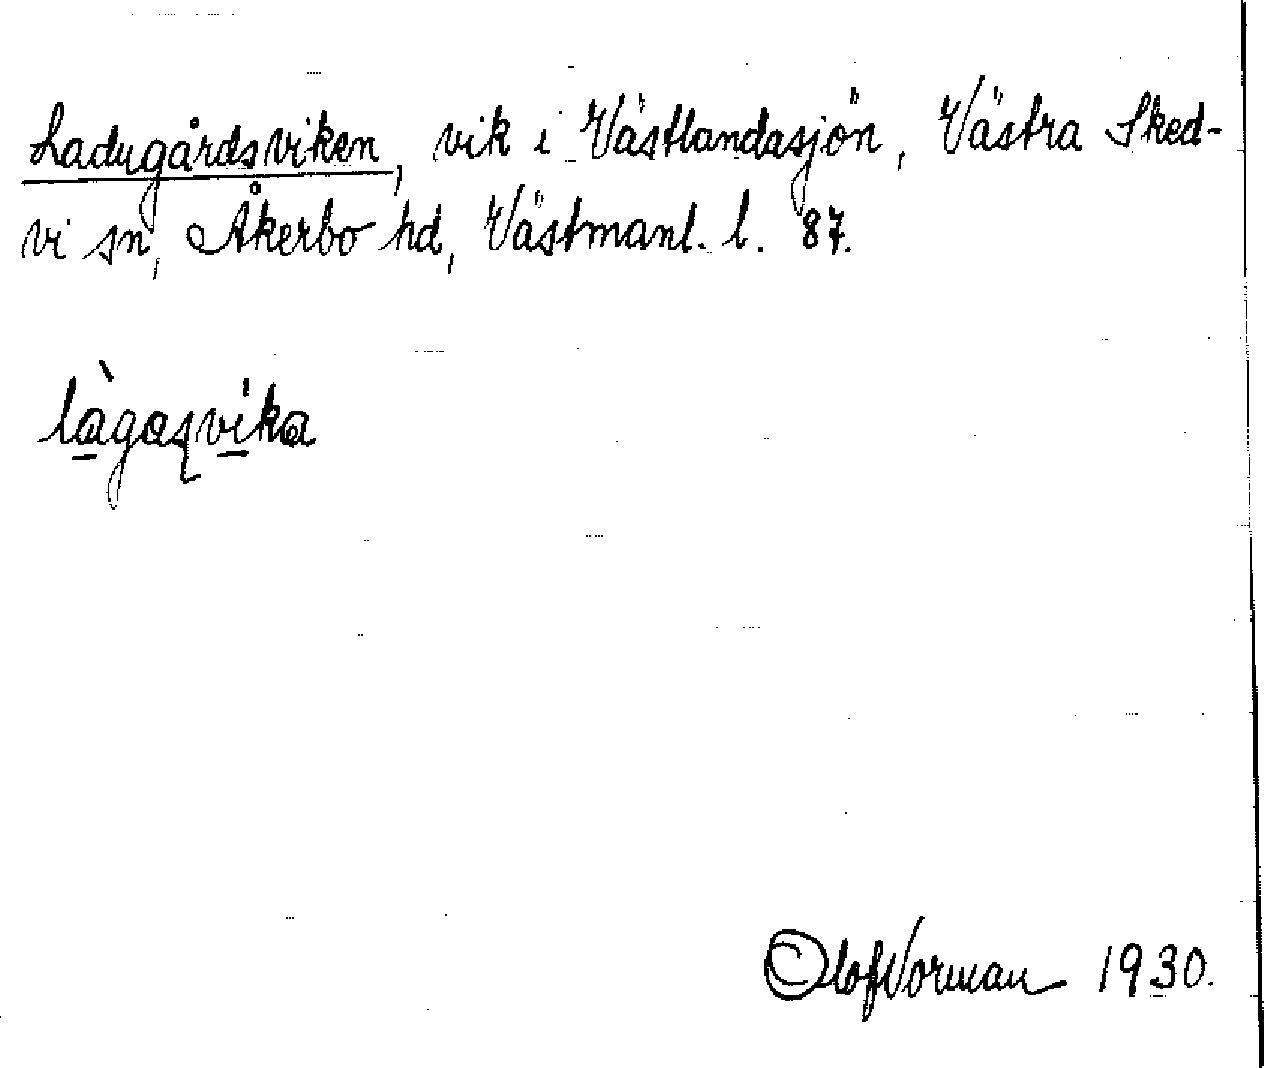 Ladugårdsviken, vik i Västlandasjön, Västra Sked-
vi sn, Åkerbo hd, Västmanl. l. 87.
là̱gasvi̱ka
Olof Norman 1930.